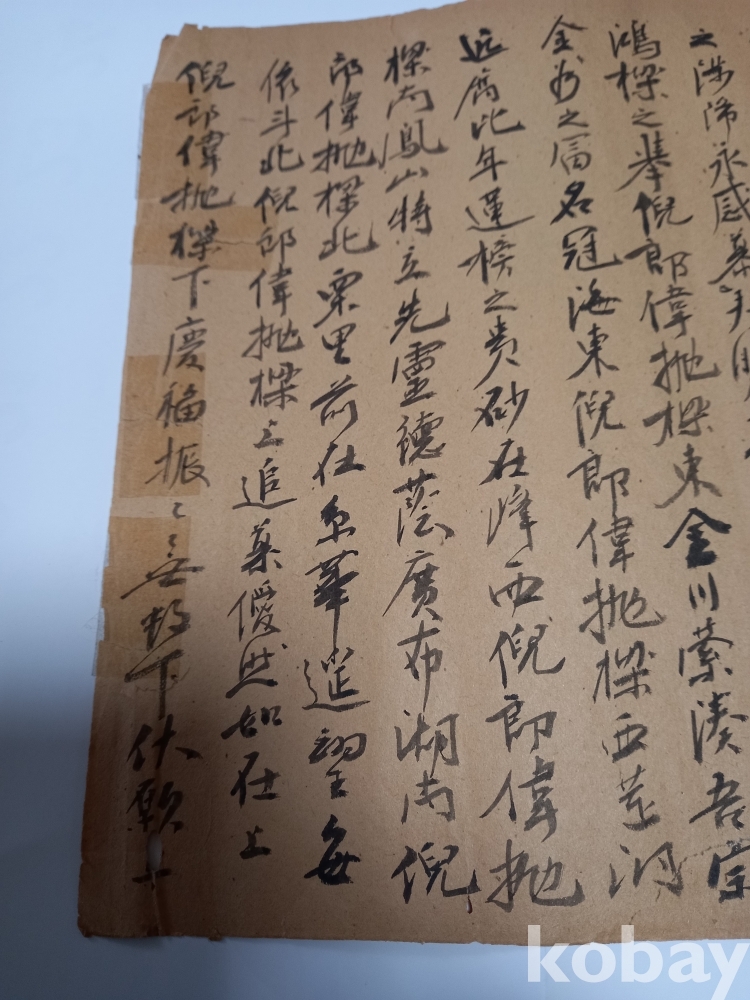 之深浠永感慕
鴻樑之擧倪郎偉抛樑東金川縈湊吾宗
金別之富名冠海東倪郎偉抛樑西
近舊此年蓮榜之貴砂在峰西倪郎偉抛
樑南鳳山特立先靈德蔭廣布湖南倪
郎偉抛樑北栗里前在京華遙望每
依斗北倪郎偉抛樑上追慕優然如在上
倪郎偉抛樑下慶福振〻無替下伏願上
kobay